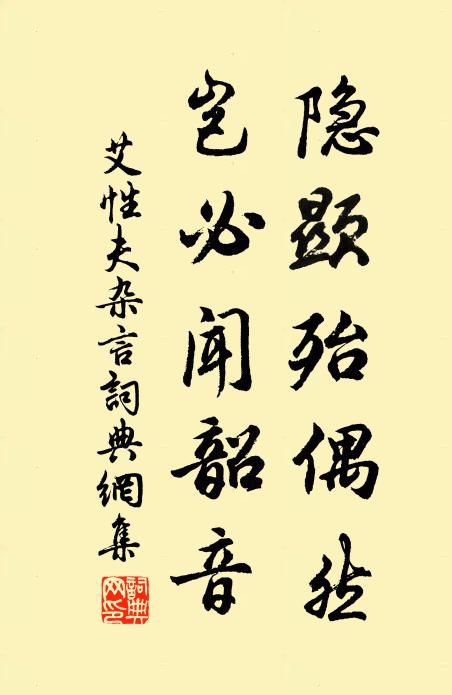 隐顯殆偶然
岂必闻韶音
艾性夫杂言詞典網集
詞典网印